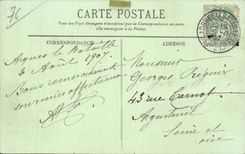 76
CARTE POSTALE
Tous les Pays étrangers n'acceptent pas la Correspondance au recto.
(Se renseigner à la Poste)
CORRESPONDANCE
ADRESSE
3 Août 1907.
Bons
souvenirs affectueux
Monsieur
Georges Régnier
43 rue Carnot
Argenteuil
Seine et
oise